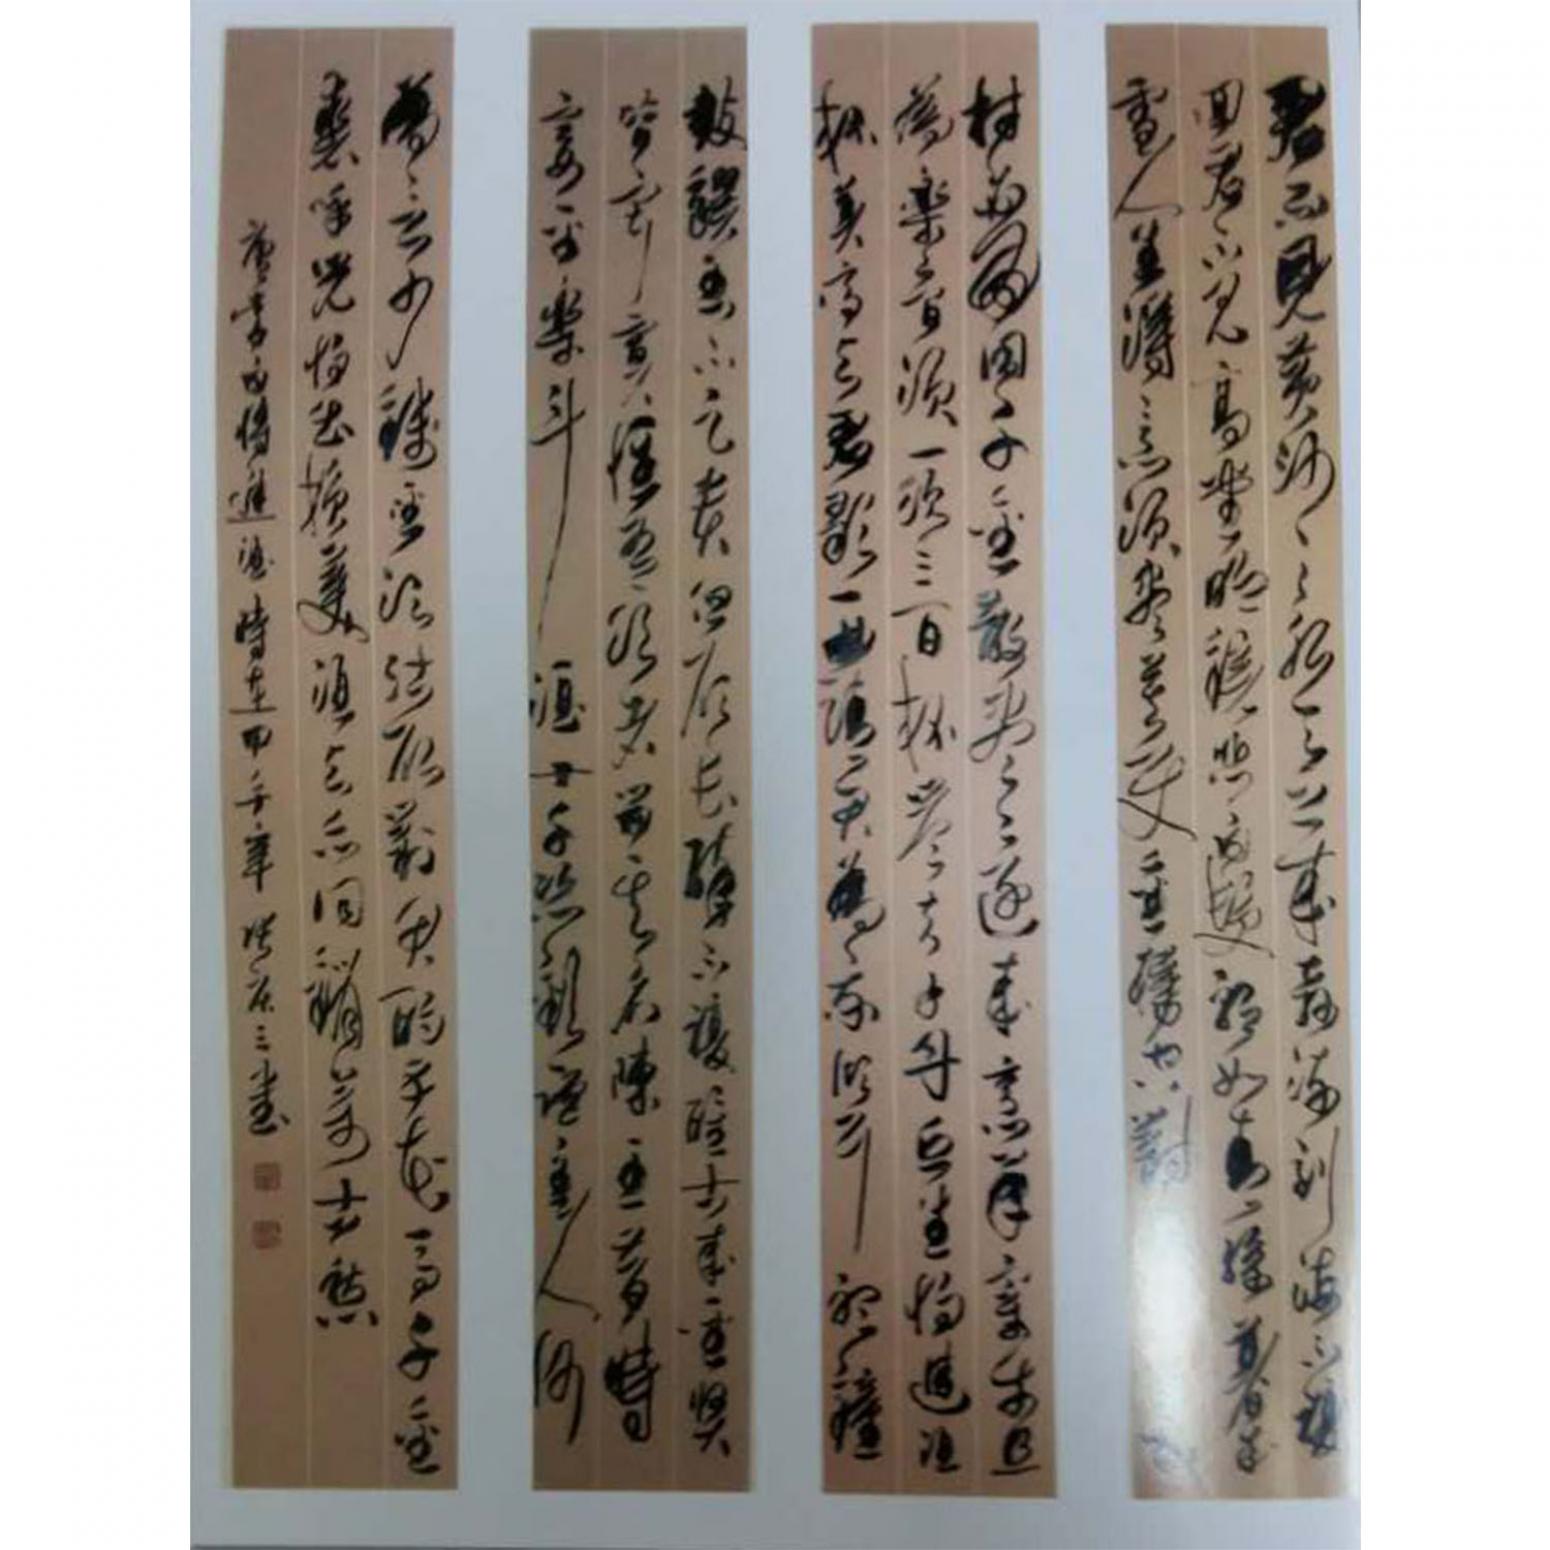 君不見黃河之水天上來奔流到海不復
回君不見高堂明鏡悲白髮朝如青絲暮成
雪人生得意須盡歡莫使金樽空對
材必有用千金散盡還復來烹羊宰牛且
為樂會須一飲三百杯岑夫子丹丘生將進酒
杯莫停與君歌一曲請君為我傾耳聽鐘
鼓饌玉不足貴但願長醉不復醒古來聖賢
皆寂寞惟有飲者留其名陳王昔時
宴平樂斗酒十千恣歡謔主人何
為言少錢徑須沽取對君酌五花馬千金
裘呼兒將出換美酒與爾同銷萬古愁
唐李白將進酒時在甲午年